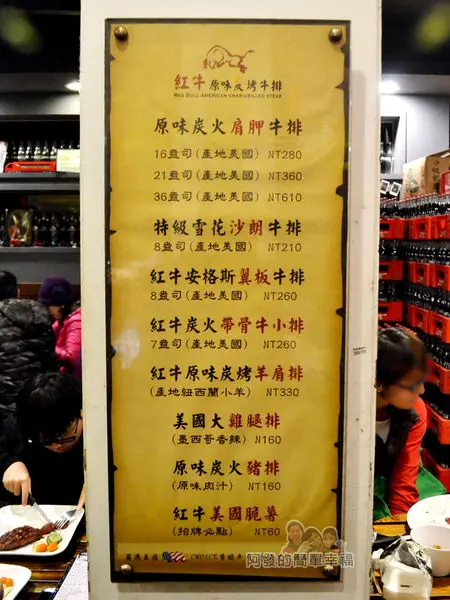 紅牛 原味炭烤牛排
RED BULL AMERICAN CHAR-GRILLED STEAK
原味炭火肩胛牛排
16盎司(產地美國) NT280
21盎司(產地美國) NT360
36盎司(產地美國) NT610
特級雪花沙朗牛排
8盎司(產地美國) NT210
紅牛安格斯翼板牛排
8盎司(產地美國) NT260
紅牛炭火帶骨牛小排
7盎司(產地美國) NT260
紅牛原味炭烤羊肩排
(產地紐西蘭小羊) NT330
美國大雞腿排
(墨西哥香辣) N160
原味炭火豬排
(原味肉汁) NT160
紅牛美國脆薯
(招牌必點) NT60
嚴選美國 CHOICE等級牛
阿發的簡單幸福